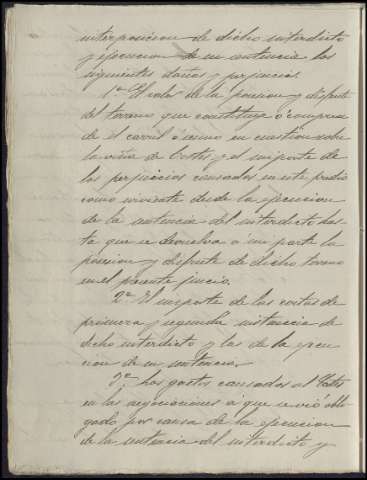 interposicion de dicho interdicto
y ejecucion de su sentencia los
siguientes daños y perjuicios.
1º El valor de la posesion y disfrute
del terreno que constituye ó comprende
de el carril ó camino en cuestion sobre
la viña de Cortés y el importe de
los perjuicios causados en este predio
como sirviente desde la ejecucion
de la sentencia del interdicto has-
ta que se devuelva a mi parte la
posesion y disfrute de dicho terreno
en el presente juicio.
2º El importe de las costas de
primera y segunda instancia de
dicho interdicto y las de la ejecu-
cion de su sentencia.
3º Los gastos causados al Cortés
en las negociaciones á que se vió obli-
gado por causa de la ejecucion
de la sentencia del interdicto y